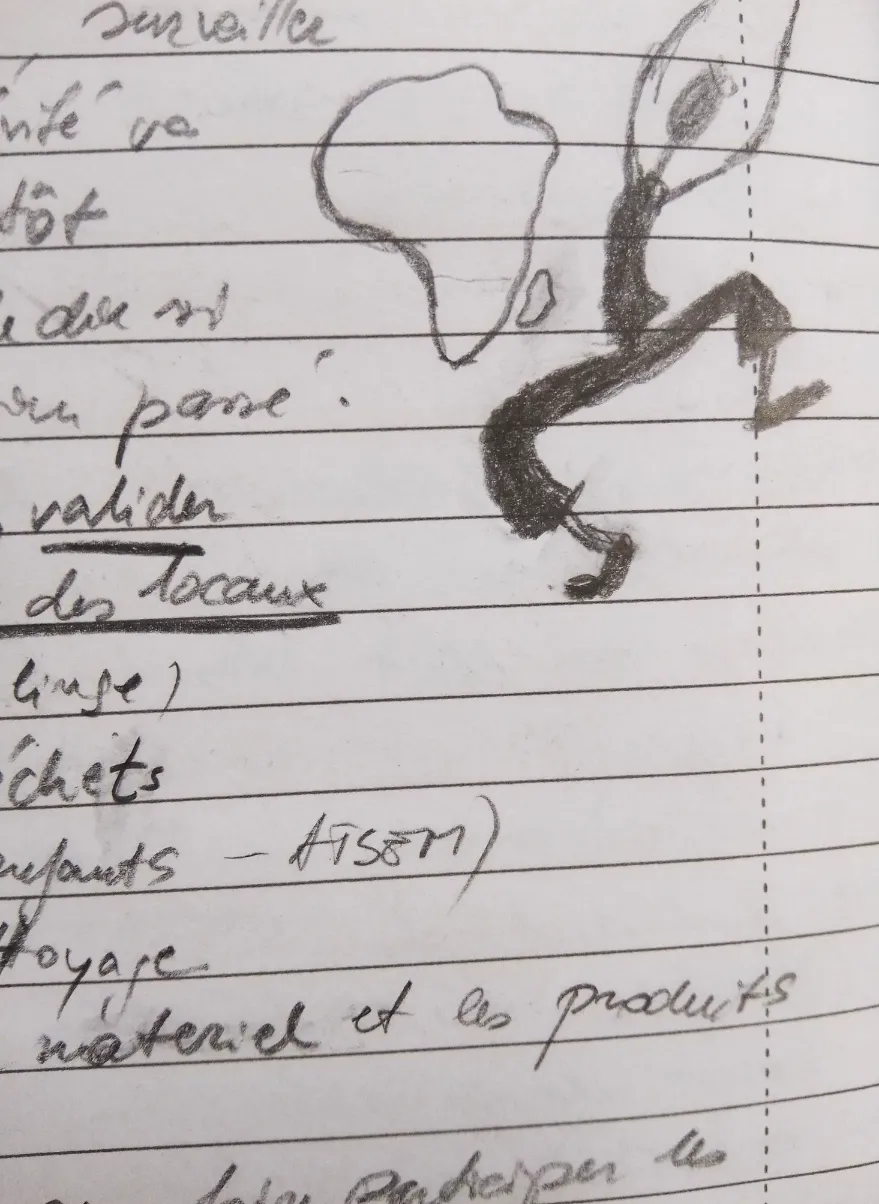 surveille
va
tôt
dire si
passé.
valider
des locaux
linge)
échets
enfants - ATSEM)
toyage
matériel et les produits
faire participer les